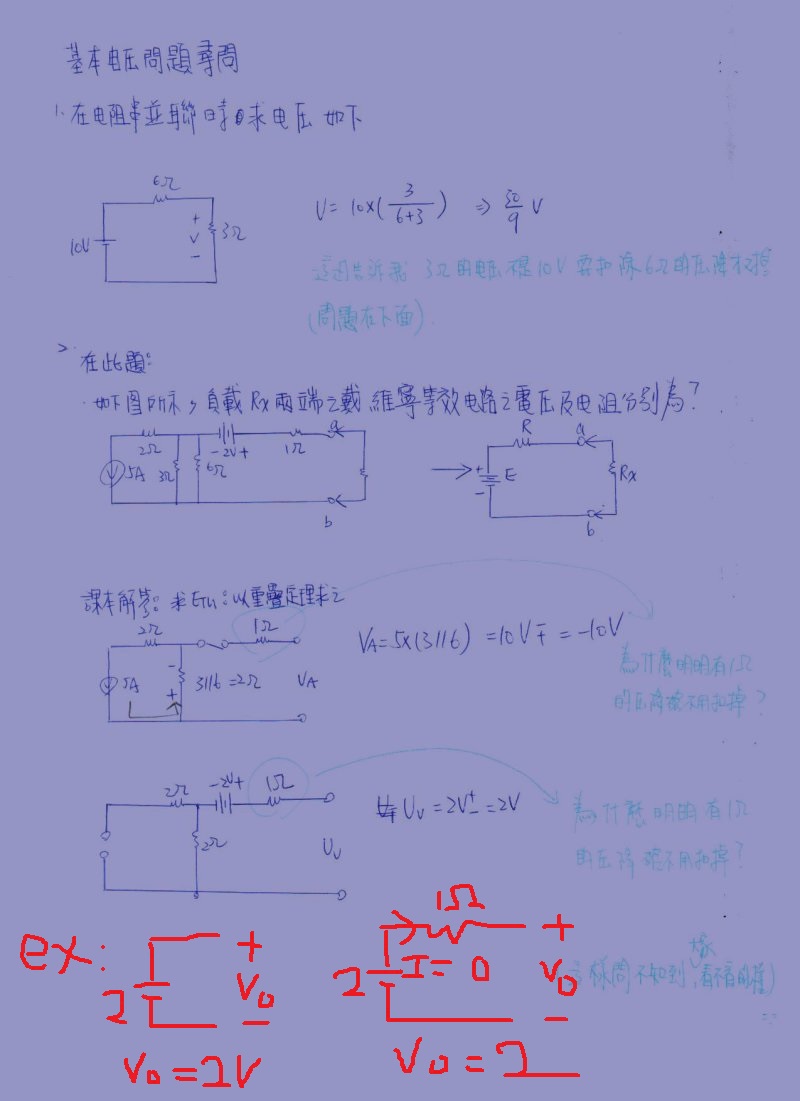 基本电压問題尋問
1. 在电阻串並聯時求电压 如下
6Ω
10V
+
V
-
3Ω
V = 10×(3/(6+3)) ⇒ 30/9 V
3Ω的电压 10V 要扣除6Ω的压降
(問題在下面)
2. 在此題:
如下图所示,負載Rx兩端之戴維寧等效电路之電压及电阻分別為?
2Ω
5A
3Ω
6Ω
-2V+
1Ω
a
b
R
a
+
E
-
Rx
b
課本解答: 求ETH: 以重疊定理求之
2Ω
1Ω
5A
-
+
3116=2Ω
VA
VA=5×(3116) =10V∓ = -10V
為什麼明明有1Ω
的压降確不用扣掉?
2Ω
-2V+
1Ω
2Ω
Uv
Uv = 2V± = 2V
為什麼明明有1Ω
的压降確不用扣掉?
這樣問不知到 看不看的懂)
ex:
2
+
Vo
-
Vo = 2V
1Ω
2
I = 0
+
Vo
-
Vo = 2